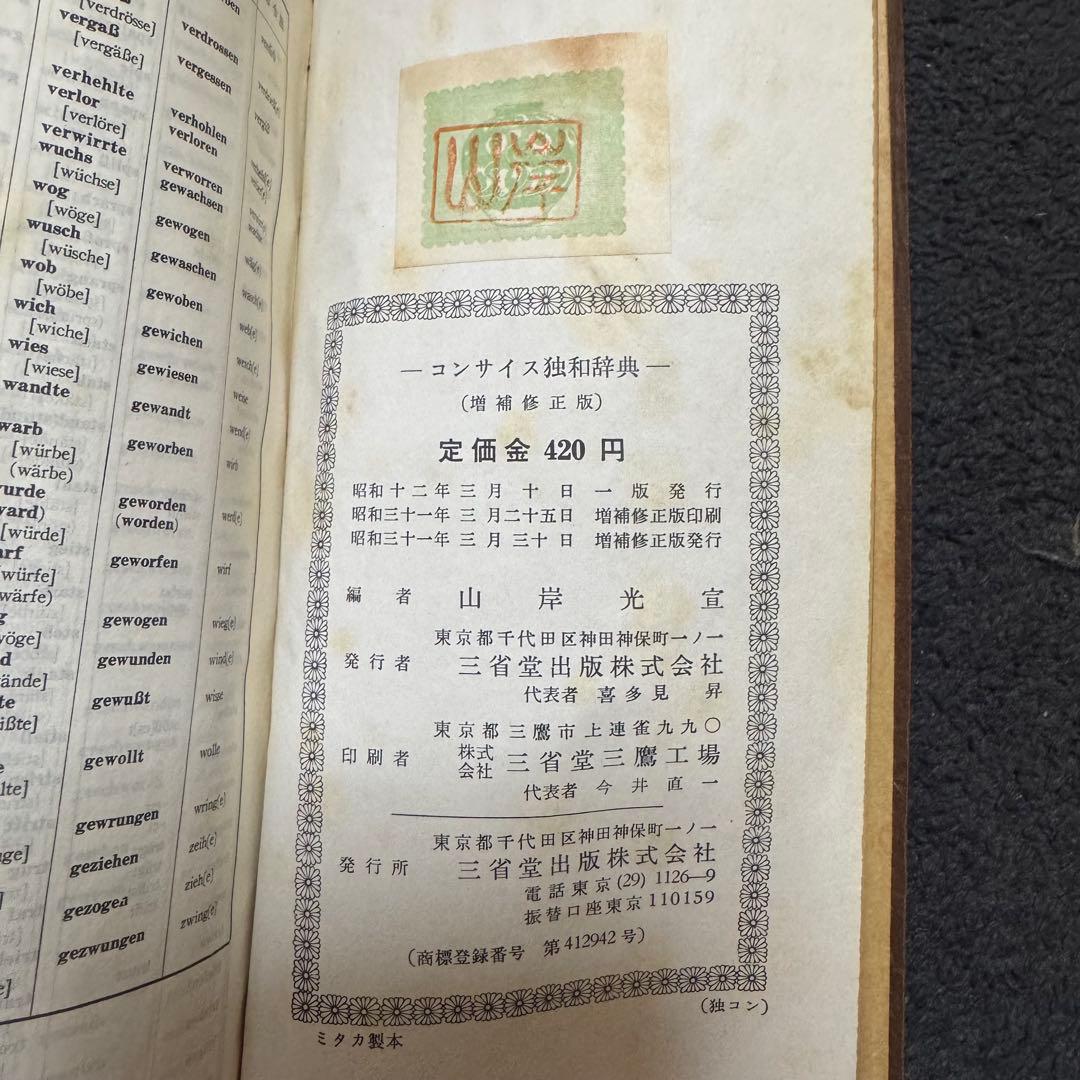 [verdrösse]
vergaß
[vergäße]
verhehlte
verlor
[verlöre]
verwirrte
wuchs
[wüchse]
wog
[wöge]
wusch
[wüsche]
wob
[wöbe]
wich
[wiche]
wies
[wiese]
wandte
warb
[würbe]
(wärbe)
[würde]
verdrossen
vergessen
verhohlen
verloren
verworren
gewachsen
gewogen
gewaschen
gewoben
gewichen
gewiesen
gewandt
geworben
geworden
(worden)
geworfen
gewogen
gewunden
gewußt
gewollt
gewrungen
geziehen
gezogen
gezwungen
web(e)
weise
wend(e)
wirb
werd(e)
wirf
wieg(e)
wind(e)
wisse
wolle
wring(e)
zeih(e)
zieh(e)
zwing(e)
山岸
—コンサイス独和辞典—
(増補修正版)
定価金 420 円
昭和十二年 三月 十日 一版発行
昭和三十一年 三月二十五日 増補修正版印刷
昭和三十一年 三月 三十日 増補修正版発行
編者 山岸光宣
東京都千代田区神田神保町一ノ一
発行者 三省堂出版株式会社
代表者 喜多見 昇
東京都三鷹市上連雀九九〇
印刷者 株式会社 三省堂三鷹工場
代表者 今井直一
東京都千代田区神田神保町一ノ一
発行所 三省堂出版株式会社
電話東京(29) 1126—9
振替口座東京 110159
(商標登録番号 第412942号)
(独コン)
ミタカ製本